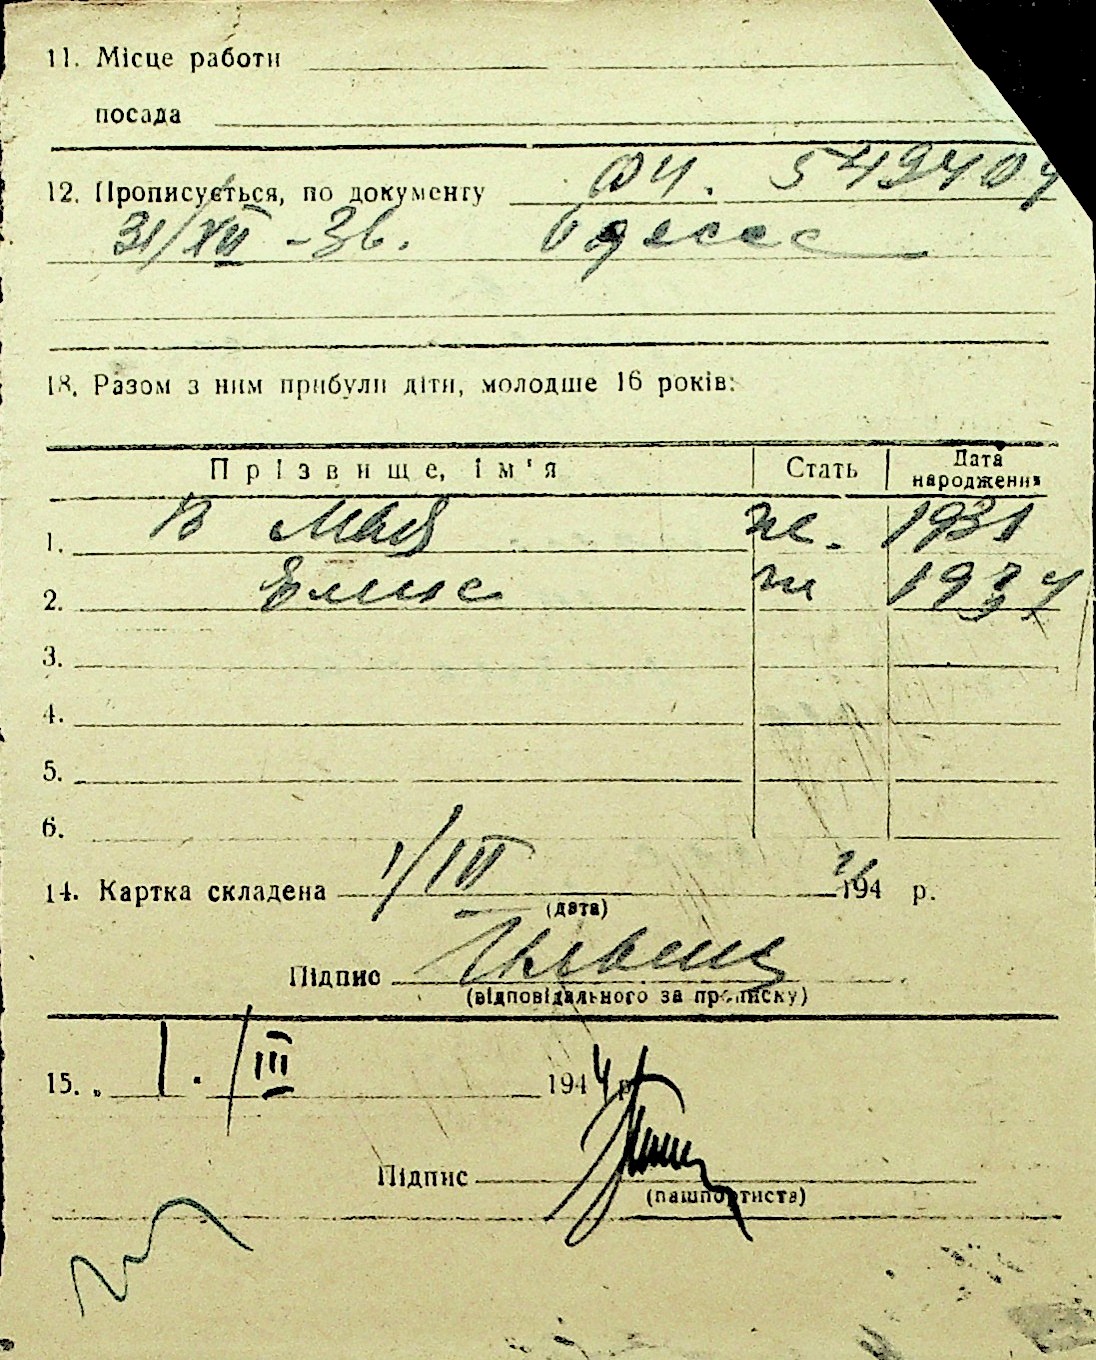 11. Місце работи
посада
12. Прописується, по документу 549404
31/XII - 36. Одесса
13. Разом з ним прибули діти, молодше 16 років:
Прізвище, ім'я Стать Дата народження
1. В Мая ж. 1931
2. ж 1937
3.
4.
5.
6.
14. Картка складена 1/III 1944 р.
(дата)
Підпис
(відповідального за прописку)
15. „ 1. /III 1944 р
Підпис
(пашпортиста)